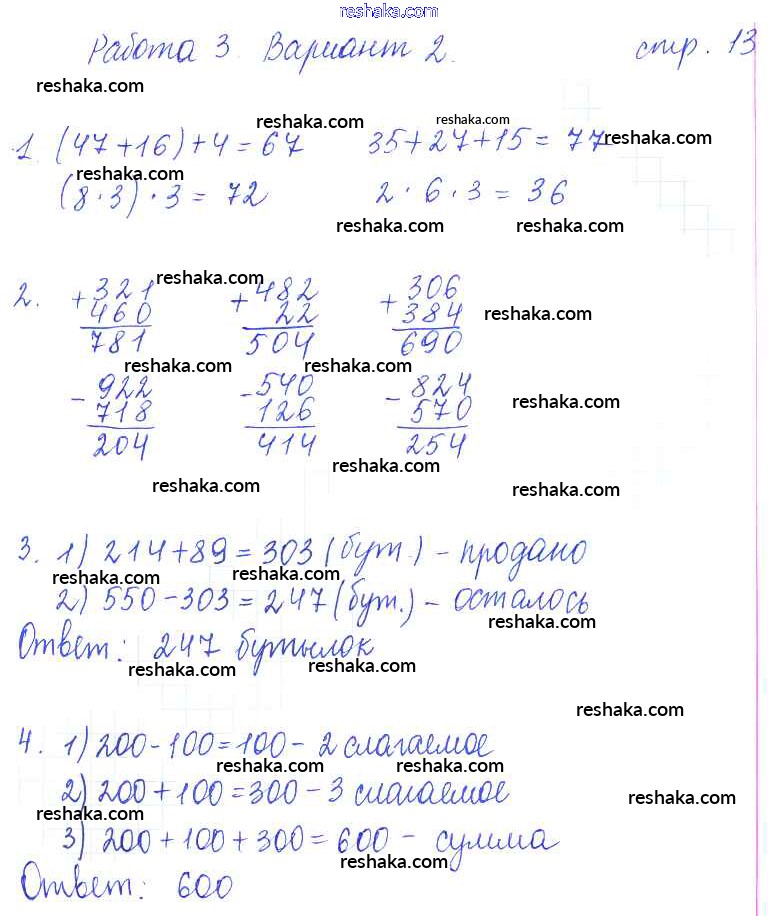 reshaka.com
Работа 3. Вариант 2. стр. 13
reshaka.com
reshaka.com reshaka.com reshaka.com
1. (47+16)+4=67 35+27+15=77
reshaka.com
(8·3)·3=72 2·6·3=36
reshaka.com reshaka.com
reshaka.com
2. +321 +482 +306
460 22 384
reshaka.com
781 504 690
reshaka.com reshaka.com
-922 -540 -824
718 126 570
reshaka.com
204 414 254
reshaka.com
reshaka.com reshaka.com
3. 1) 214+89=303 (бут.) - продано
reshaka.com reshaka.com
2) 550-303=247 (бут.) - осталось
reshaka.com
Ответ: 247 бутылок
reshaka.com reshaka.com
reshaka.com
4. 1) 200-100=100 - 2 слагаемое
reshaka.com reshaka.com
2) 200+100=300 - 3 слагаемое
reshaka.com reshaka.com
3) 200+100+300=600 - сумма
reshaka.com
Ответ: 600